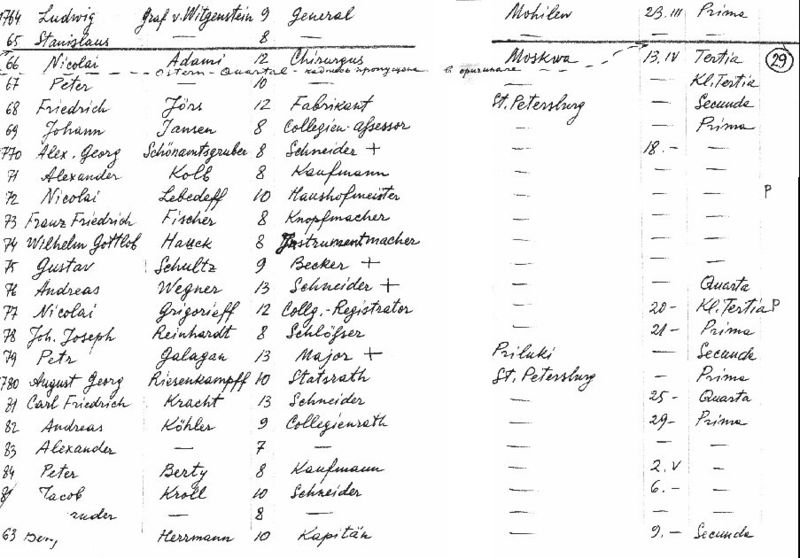 1764 Ludwig Graf v. Witgenstein 9 General Mohilew 23.III Prima
65 Stanislaus — 8 — — — —
66 Nicolai Adami 12 Chirurgus Moskwa 13.IV Tertia 29
Ostern-Quartal - надпись пропущена в оригинале
67 Peter — 10 — — — Kl. Tertia
68 Friedrich Jörs 12 Fabrikant St. Petersburg — Secunda
69 Johann Jansen 8 Collegien-Assessor — — Prima
770 Alex. Georg Schönamtsgruber 8 Schneider + — 18.- —
71 Alexander Kolb 8 Kaufmann — — —
72 Nicolai Lebedeff 10 Haushofmeister — — — P
73 Franz Friedrich Fischer 8 Knopfmacher — — —
74 Wilhelm Gottlob Hauck 8 Instrumentmacher — — —
75 Gustav Schultz 9 Becker + — — —
76 Andreas Wegner 13 Schneider + — — Quarta
77 Nicolai Grigorieff 12 Collg.-Registrator — 20- Kl. Tertia P
78 Joh. Joseph Reinhardt 8 Schlösser — 21- Prima
79 Petr Galagan 13 Major + Priluki — Secunda
780 August Georg Riesenkampff 10 Statsrath St. Petersburg — Prima
81 Carl Friedrich Kracht 13 Schneider — 25- Quarta
82 Andreas Köhler 9 Collegienrath — 29- Prima
83 Alexander — 7 — — — —
84 Peter Berty 8 Kaufmann — 2.V —
Jacob Kroll 10 Schneider — 6.- —
ander — 8 — —
63 Herrmann 10 Kapitän — 9.- Secunda